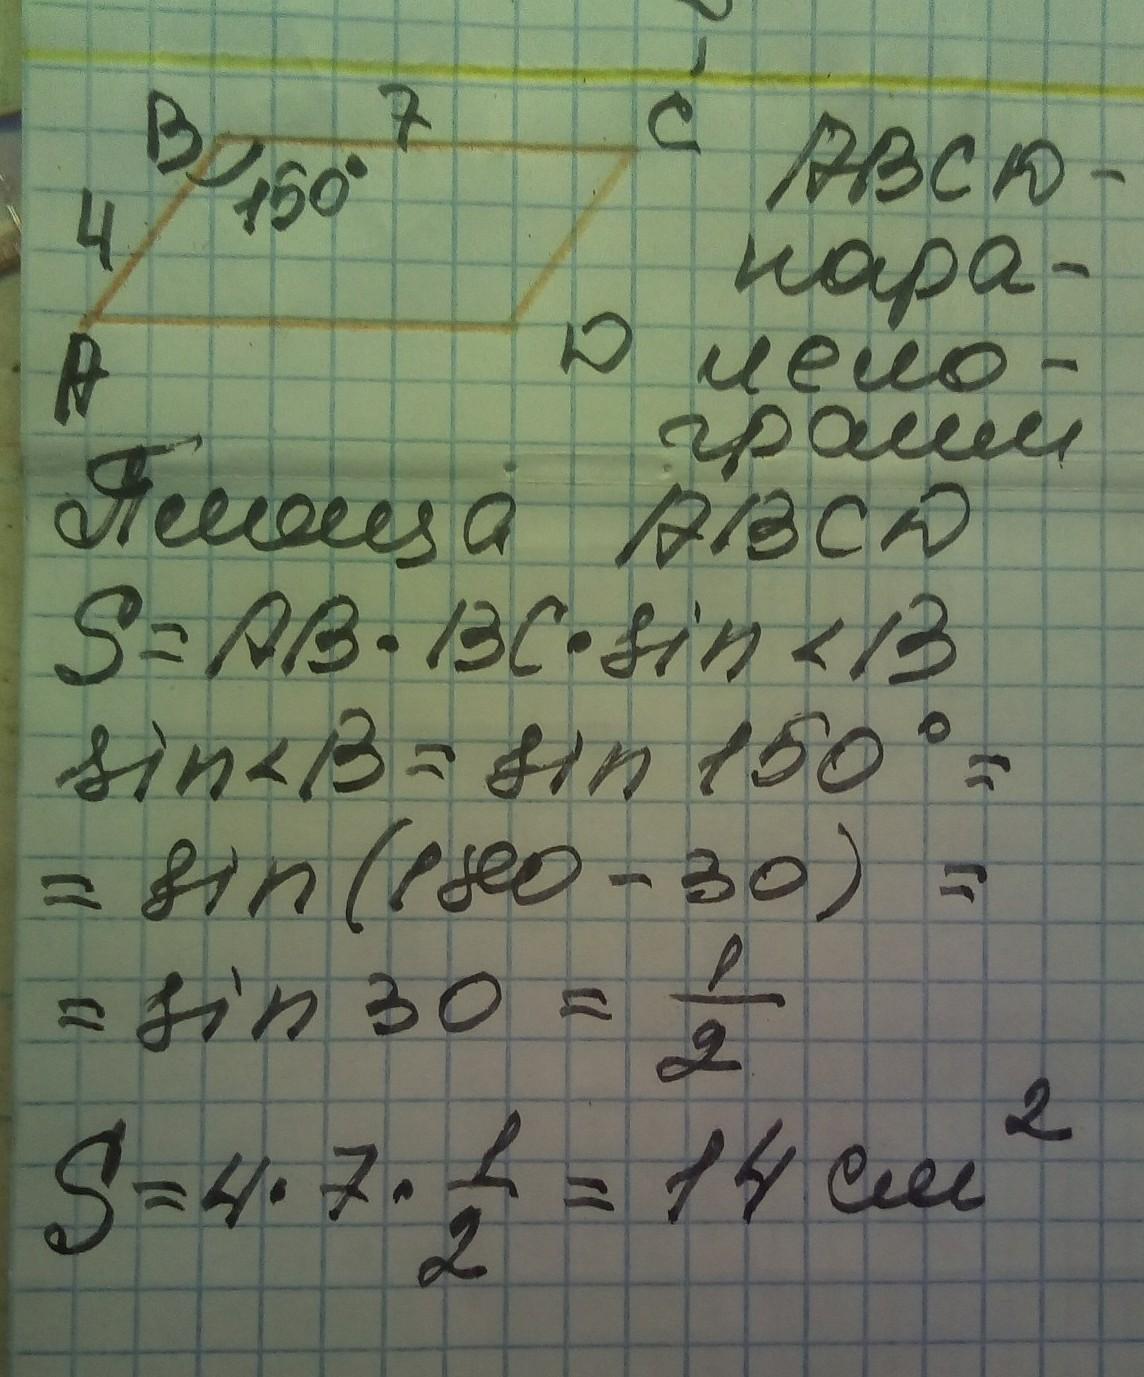 B 7 C
150°
4
A D
ABCD -
пара-
лело-
грам
Площа ABCD
S = AB · BC · sin < B
sin < B = sin 150° =
= sin (180 - 30) =
= sin 30 = 1/2
S = 4 · 7 · 1/2 = 14 см²